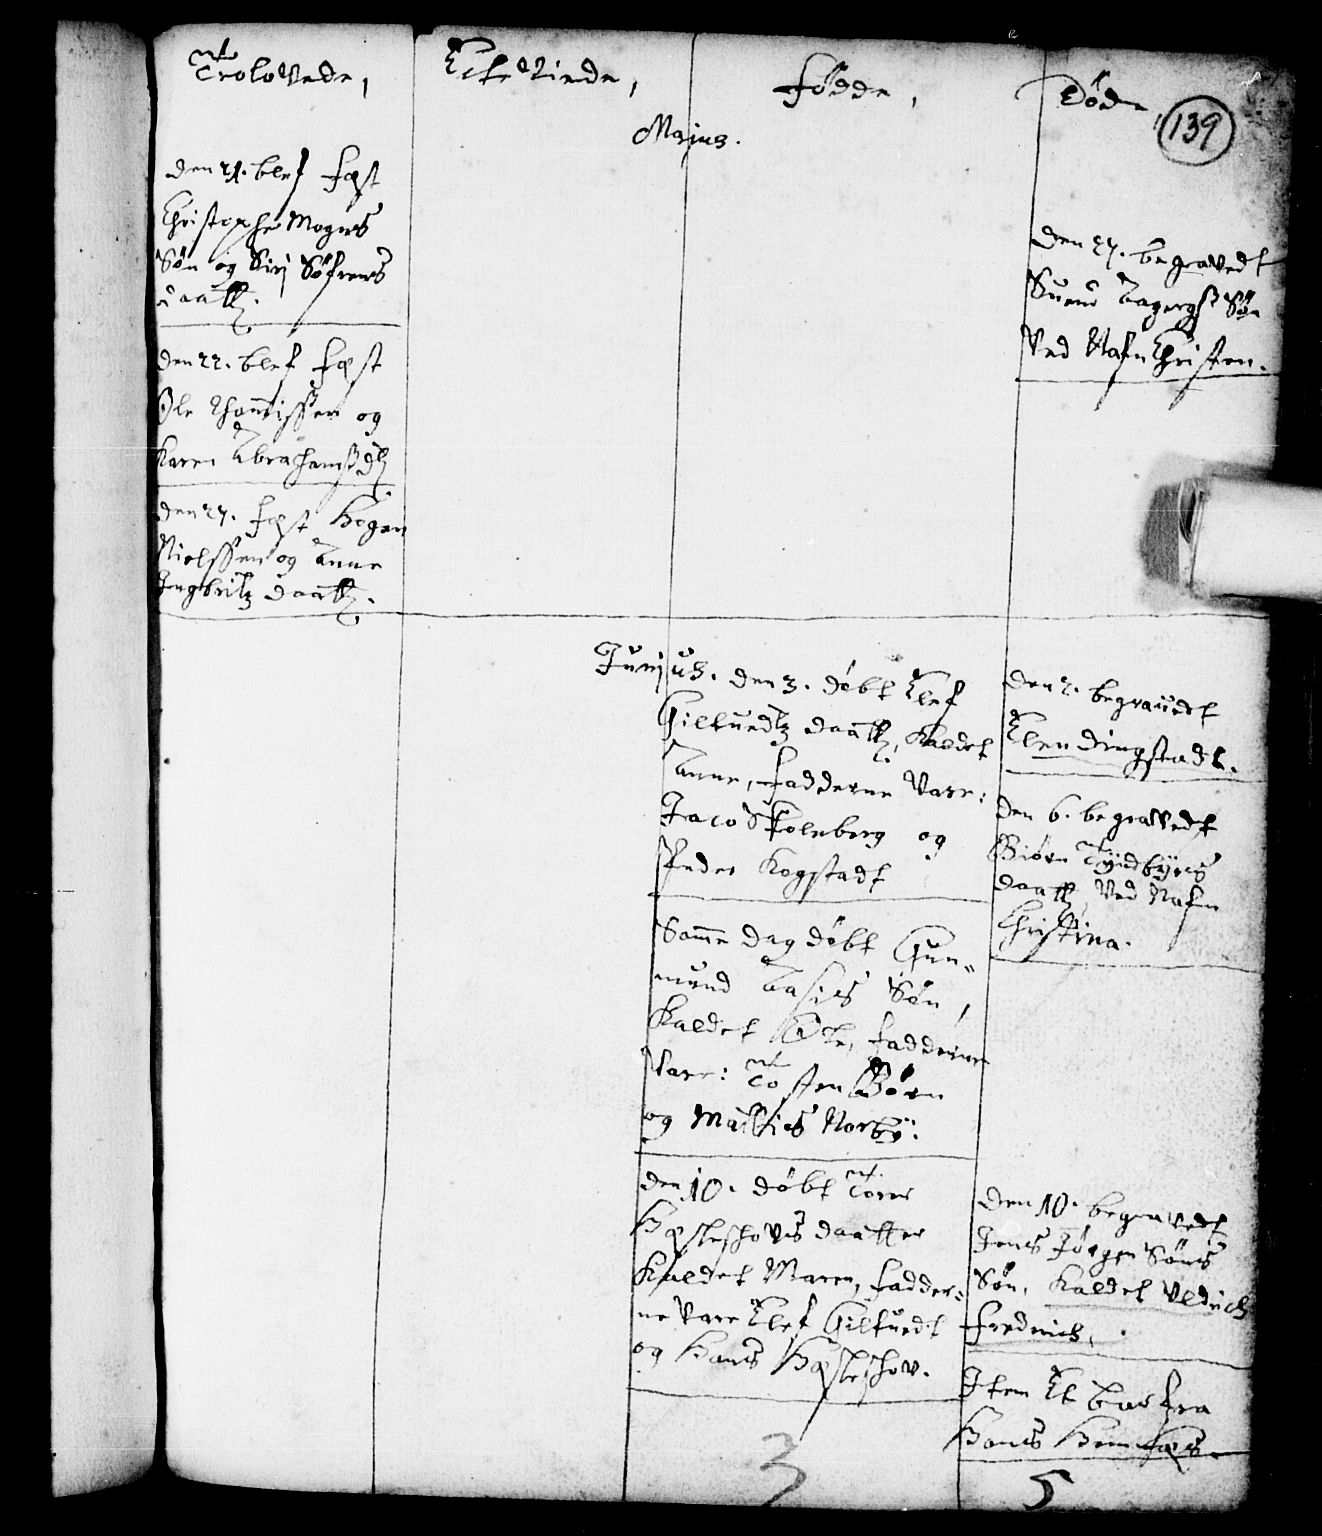 Trolovede,
Ecteviede,
fødde,
Døde,
139
Majus.
den 21. blef fæst
Christopher Mogens
Søn og Siri Søfrens
daatt.
den 22. blef fæst
Ole Thommissen og
Karen Abrahamsd.
den 27. fæst Hogen
Nielssen og Anne
Ingbritz daatt.
den 27. begravedt
Suend Søn
Ved Nafn Christen.
Junius. den 3. døbt Elef
Gilkuedtz daatt, Kaldet
Anne, fadderne Vare:
Jacob Skoleberg og
Peder Kogstadt
Samme dag døbt Gun-
mund Søn,
Kaldet Ole, fadderne
Vare: Tosten Børn
og Matties Norbÿ.
den 10. døbt Tores
Hæsleshovs daatter
Kaldet Maren, fadder-
ne vare Elef Gilkuedt
og Hans Hæsleshov.
3
den 2. begrauedt
Elen dingstadt.
den 6. begravedt
Biørn
daatt, Ved Nafn
Christina.
den 10. begravedt
Jens Jørgen Søns
Søn, Kaldet Uldrich
fredrich.
Item Et barn fra
Hans
5